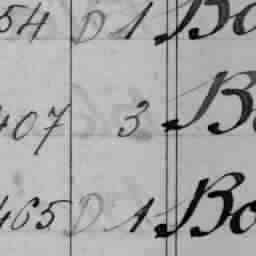 54 D 1 Bo
407 3 B
465 D 1 Bo